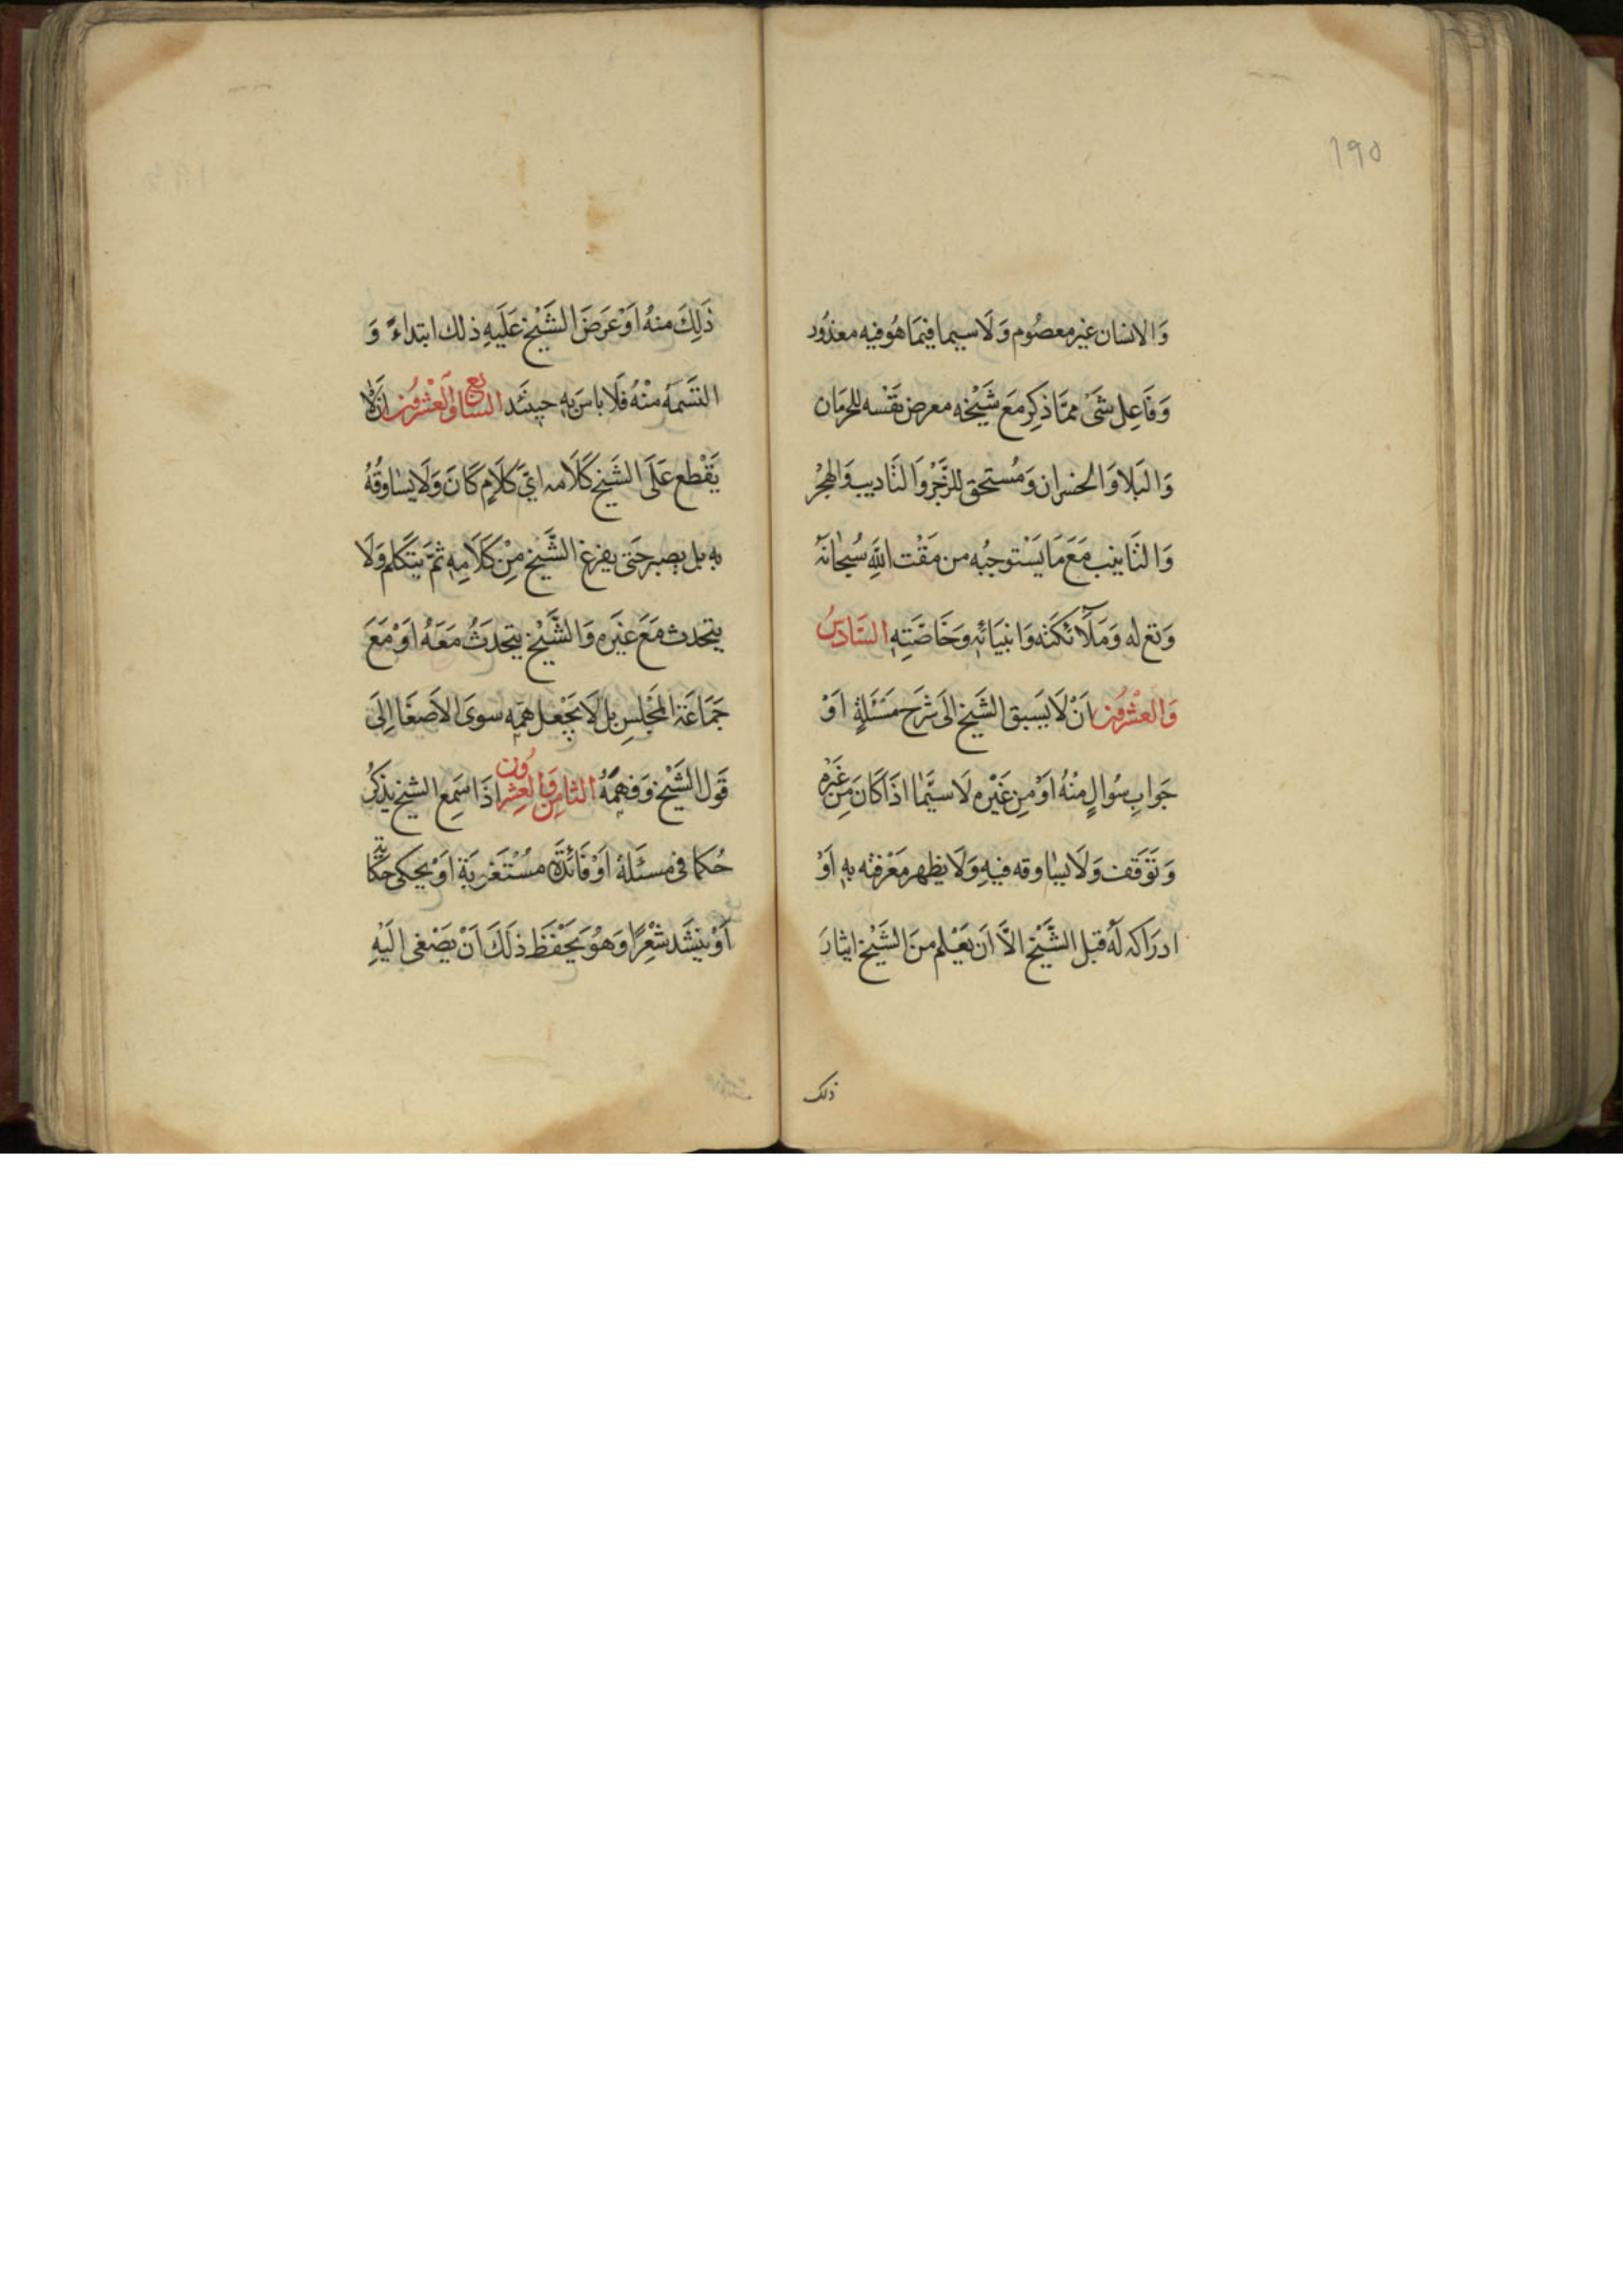 ١٩٥
وَالانسان غير معصُوم وَلَا سيما فيمَا هُو فيه معذُور
وَفَاعِل شَىْ ممَّا ذكِر مَعَ شَيْخه معرض نفْسه للحرمَان
وَالبَلا وَالخسران وَمُستحق للزَّجْر وَالتَاديب وَالهجْر
وَالتَانيب مَعَ مَا يَسْتوجبُه من مَقْت اللَّهِ سُبْحٰانَهُ
وَتع له وَمَلَآئكَته وَانبيَائهِ وَخَاصَّتِهِ السَّادسُ
وَالعشْرُون اَنْ لَا يَسبق الشَيخ الى شَرْح مَسْئَلةٍ اَوْ
جَوابِ سُوالٍ منْهُ اَوْ مِن غَيْره لَا سيَّمٰا اذَا كَانَ مِن غَيْره
وَتَوَقف وَلَا يساوقه فيهِ وَلَا يظهر مَعْرفته بهِ اَوْ
ادرَاكه لَهُ قبل الشَّيْخ الَّا اَن يَعْلم منَ الشَيْخ ايثارَ
ذلك
ذَلِكَ منهُ اَوْ عَرَضَ الشَيْخ عَلَيهِ ذلك ابتداءً وَ
التسَمَهُ منْهُ فَلَا باسَ بهِ حينئذ السابع وَالعشْرُون اَن لَا
يَقْطع عَلَى الشَيخ كَلَامه اىّ كَلَامٍ كَانَ وَلَا يسٰاوقُهُ
به بل يصبر حَتى يفرغ الشَّيخ مِنْ كَلَامِهِ ثمَّ يَتكَلم وَلَا
يتحدث مَعَ غيَره وَالشَّيْخ يتحدَثُ مَعَهُ اَوْ مَعَ
جَمَاعَة المَجْلسِ بل لَا يَجْعل همّهِ سوَى الاَصغَا اِلَى
قَول الشَيْخ وَفهمَهُ الثامن وَالعشرُون اذَا سَمِع الشيخ يذكرُ
حُكما فى مسئَلة اَوْ فَائدَة مُسْتَغربَة اَوْ يحكى حكَاية
اَوْ ينشَد شعْرًا وَهُوَ يَحْفَظ ذلَكَ اَنْ يصْغى الَيْهِ